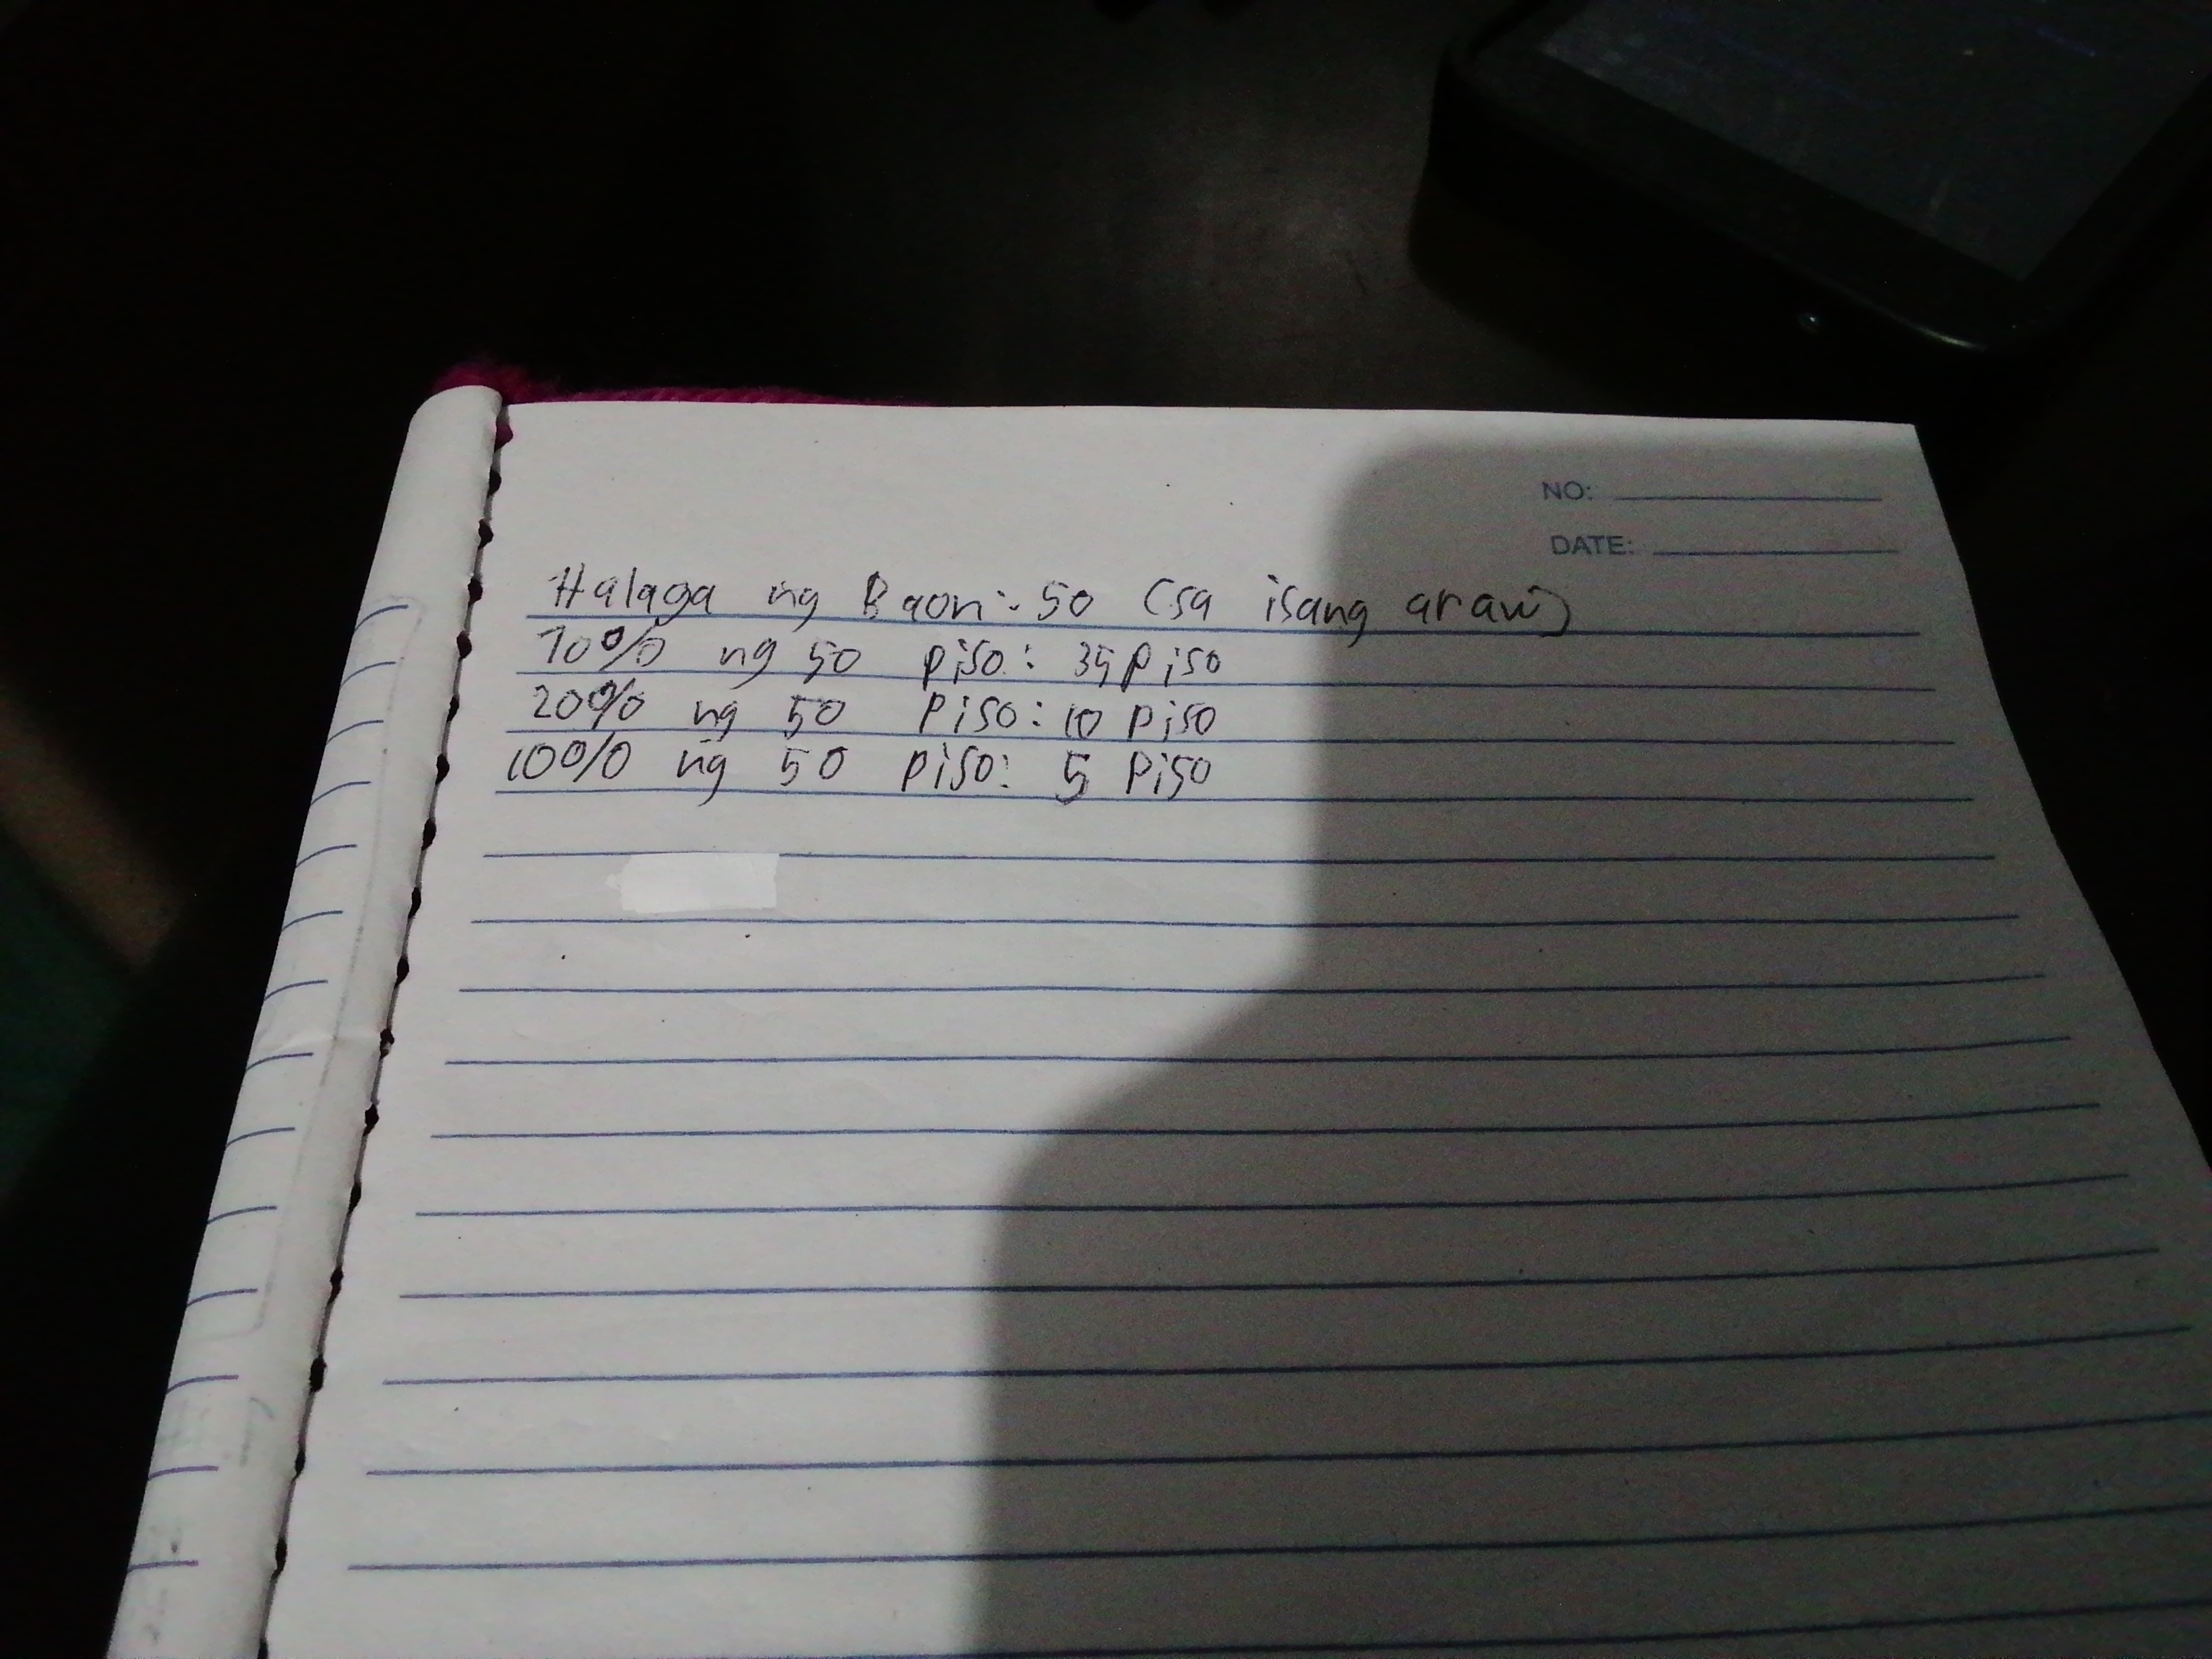 NO:
DATE:
Halaga ng Baon:- 50 (sa isang araw)
70% ng 50 piso: 35 piso
20% ng 50 piso: 10 piso
10% ng 50 piso: 5 piso